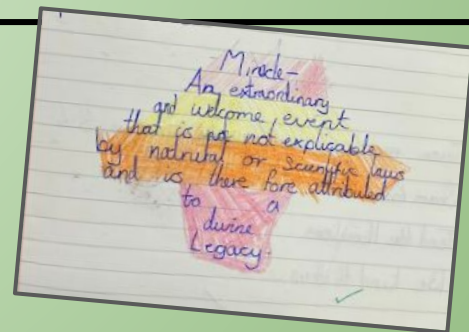 Miracle-
An extraordinary
and welcome event
that is not explicable
by natrural or scientific laws
and is there fore attributed
to a
divine
Legacy.